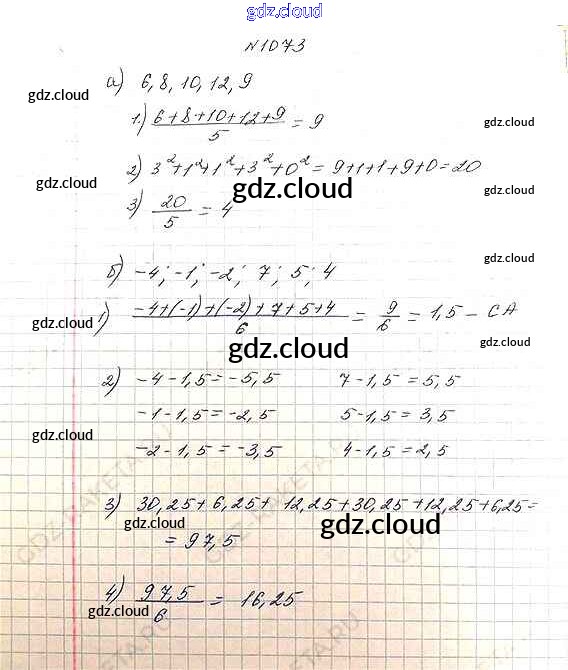 gdz.cloud
N1073
а) 6, 8, 10, 12, 9
gdz.cloud
1) (6+8+10+12+9)/5 = 9
gdz.cloud
2) 3²+1²+1²+3²+0² = 9+1+1+9+0=20
gdz.cloud
gdz.cloud
gdz.cloud
3) 20/5 = 4
б) -4; -1; -2; 7; 5; 4
gdz.cloud
1) (-4+(-1)+(-2)+7+5+4)/6 = 9/6 = 1,5 - СА
gdz.cloud
gdz.cloud
gdz.cloud
2) -4-1,5=-5,5 7-1,5=5,5
-1-1,5=-2,5 5-1,5=3,5
gdz.cloud
-2-1,5=-3,5 4-1,5=2,5
3) 30,25+6,25+12,25+30,25+12,25+6,25=
gdz.cloud
gdz.cloud
= 97,5
4) 97,5/6 = 16,25
gdz.cloud
gdz.cloud